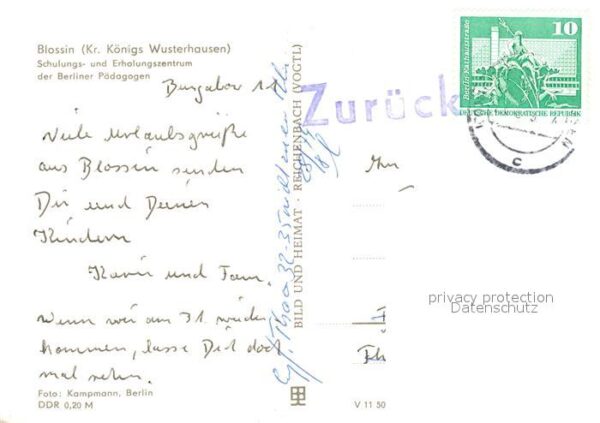 Blossin (Kr. Königs Wusterhausen)
Schulungs- und Erholungszentrum
der Berliner Pädagogen
Viele Urlaubsgrüße
aus Blossin senden
Dir und Deinen
Kindern
Karin und Fam.
Wenn wir am 31. wieder
kommen, lasse Dich doch
mal sehn.
Foto: Kampmann, Berlin
DDR 0,20 M
BILD UND HEIMAT · REICHENBACH (VOGTL)
V 11 50
Zurück
10
Berlin, Rathausstraße
DEUTSCHE DEMOKRATISCHE REPUBLIK
c
privacy protection
Datenschutz